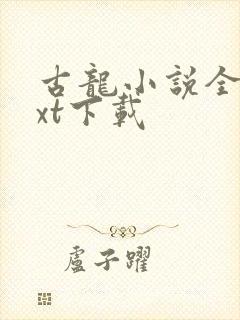 古龍小説全
xt下載
盧子躍